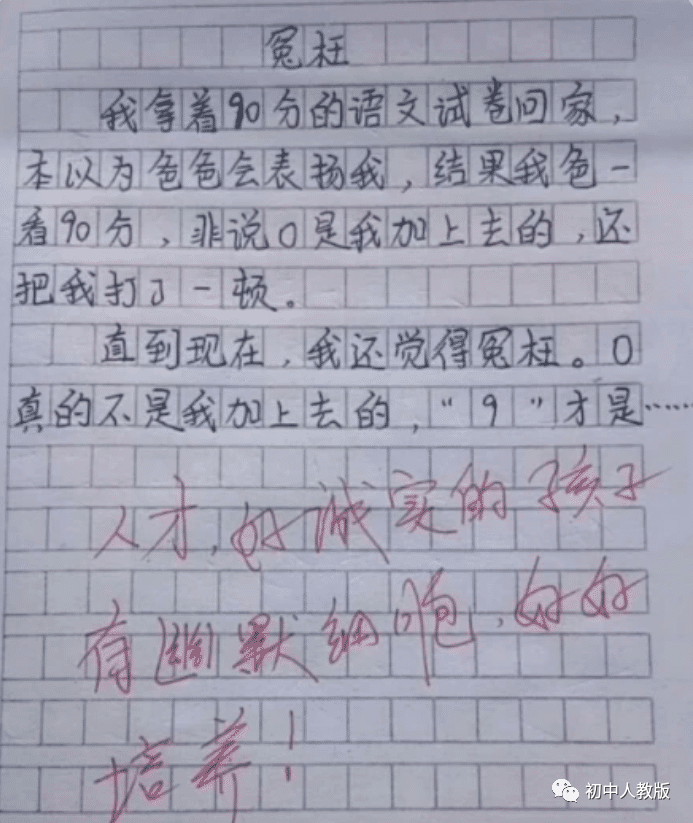 冤枉
我拿着90分的语文试卷回家，
本以为爸爸会表扬我，结果我爸一
看90分，非说0是我加上去的，还
把我打了一顿。
直到现在，我还觉得冤枉。0
真的不是我加上去的，“9”才是……
人才，好诚实的孩子
有幽默细胞，好好
培养！
初中人教版